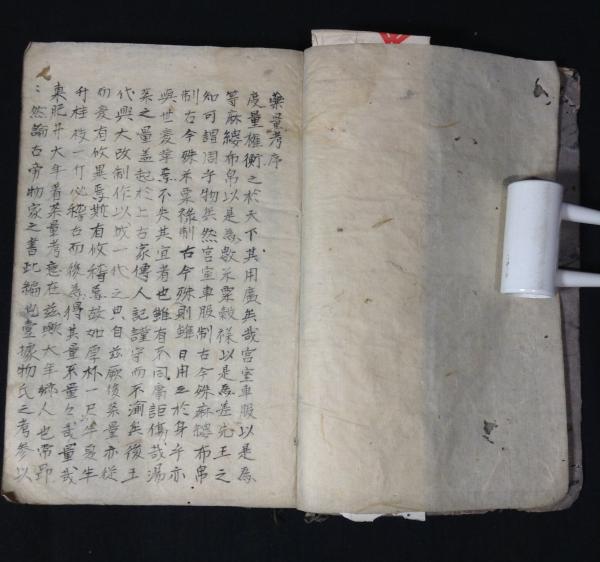 藥量考序
度量權衡之於天下其用廣矣哉宮室車服以是爲
等麻縷布帛以是爲數米粟穀祿以是爲差先王之
制古今殊米粟祿制古今殊則雖日用之於身乎亦
知可謂周于物矣然宮室車服制古今殊麻縷布帛
與世變革焉不失其宜者也雖有不同庸詎傷哉湯
藥之量蓋起於上古家傳人記謹守而不渝矣後王
代興大改制作以成一代之典自玆厥後藥量亦從
而變有攸異焉歎有攸稽焉故如厚朴一尺半夏半
升桂枝一斤必稽古而後爲得其量不量之哉量哉
東肥井大年著藥量考意在玆歟大年鄉人也常卽
然論古帝物家之書此編也壹據物氏之考參以